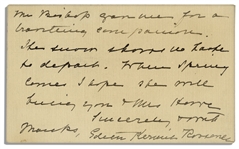 Mr Bishop for a
travelling companion.
The snow shows no haste
to depart. When Spring
comes I hope she will
bring you & Mrs Howe
Sincerely
Thanks, Edith Kermit Roosevelt